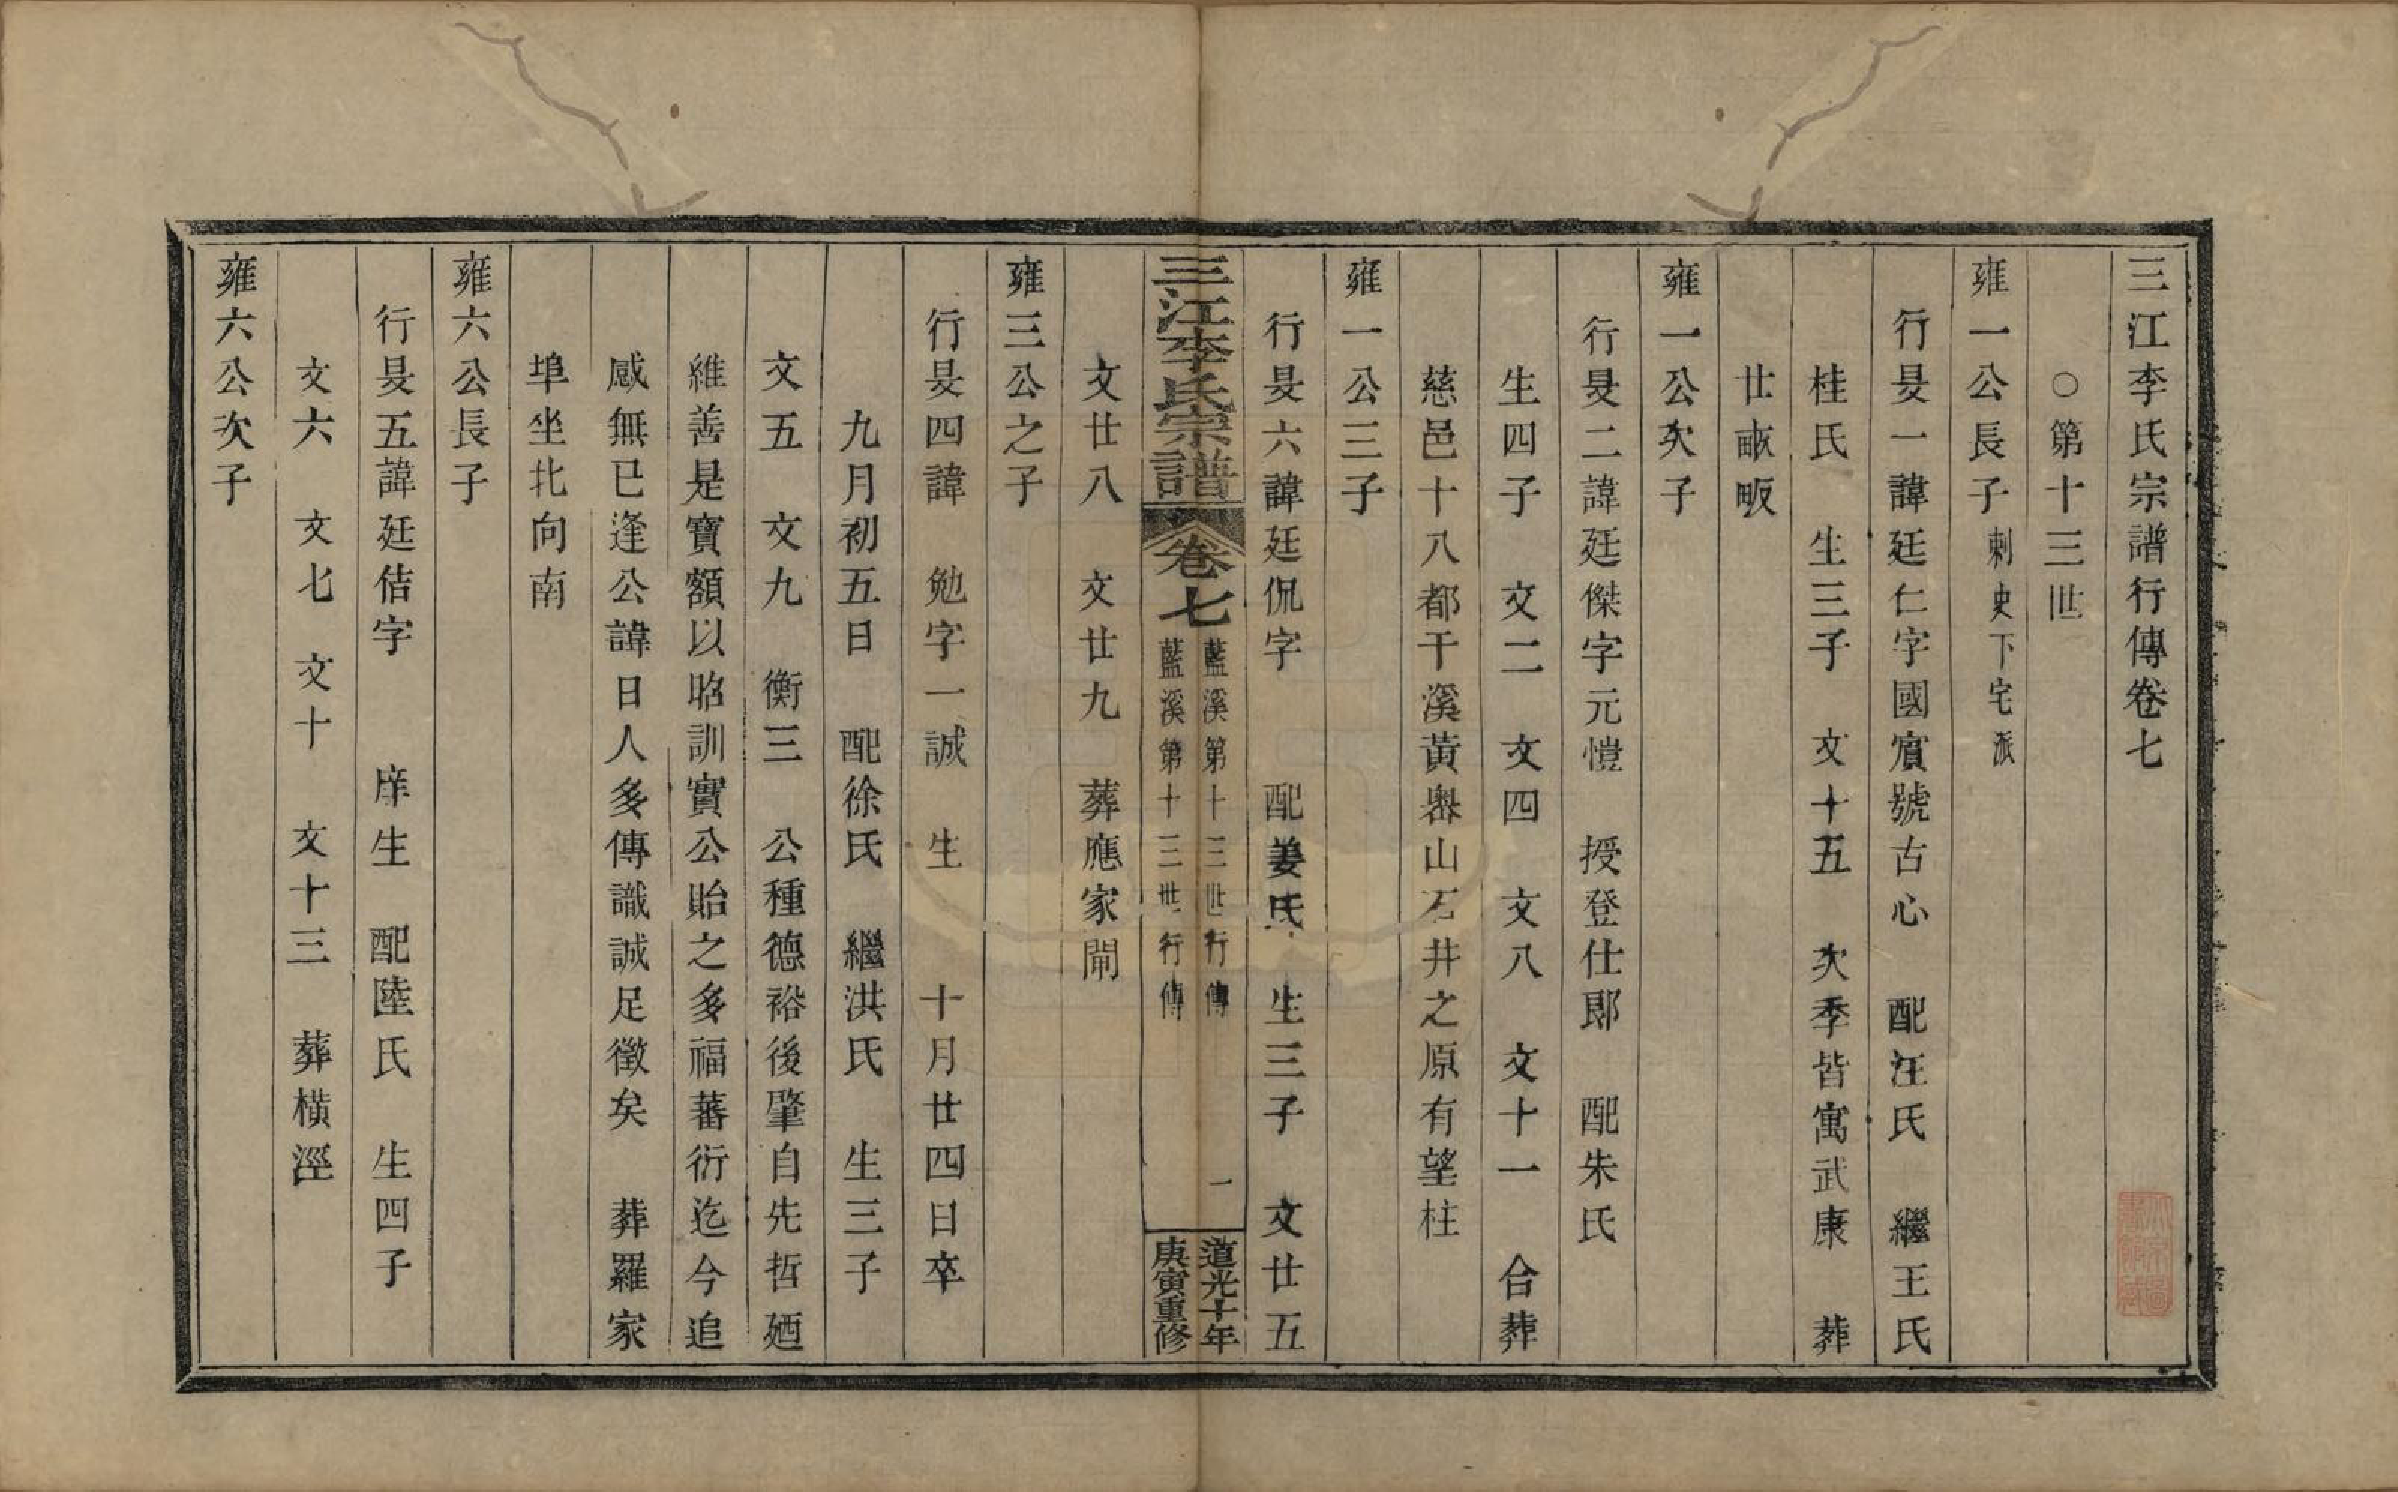 三江李氏宗譜行傳卷七
○第十三世
雍一公長子 刺史下宅派
行旻一諱廷仁字國賔號古心 配汪氏 繼王氏
桂氏 生三子 文十五 次季皆寓武康 葬
廿畝畈
雍一公次子
行旻二諱廷傑字元愷 授登仕郎 配朱氏
生四子 文二 文四 文八 文十一 合葬
慈邑十八都干溪黃㠘山石井之原有望柱
雍一公三子
行旻六諱廷侃字 配姜氏 生三子 文廿五
三江李氏宗譜 卷七 藍溪第十三世行傳 一 道光十年
藍溪第十三世行傳 庚寅重修
文廿八 文廿九 葬應家鬧
雍三公之子
行旻四諱 勉字一誠 生 十月廿四日卒
九月初五日 配徐氏 繼洪氏 生三子
文五 文九 衡三 公種德裕後肇自先哲廼
維善是寶額以昭訓實公貽之多福蕃衍迄今追
感無已逢公諱日人多傳識誠足徵矣 葬羅家
埠坐北向南
雍六公長子
行旻五諱廷佶字 庠生 配陸氏 生四子
文六 文七 文十 文十三 葬橫涇
雍六公次子